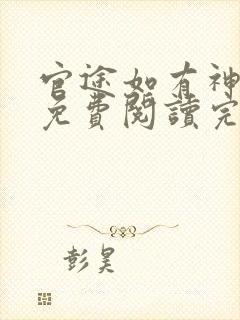 官途如有神
免費閱讀完
彭昊